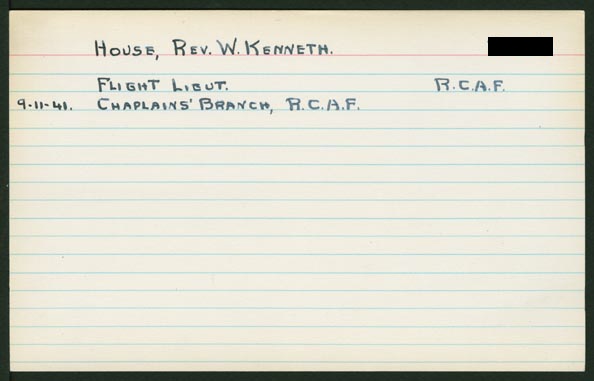 House, Rev. W. Kenneth.
Flight Lieut. R.C.A.F.
9-11-41. Chaplains' Branch, R.C.A.F.